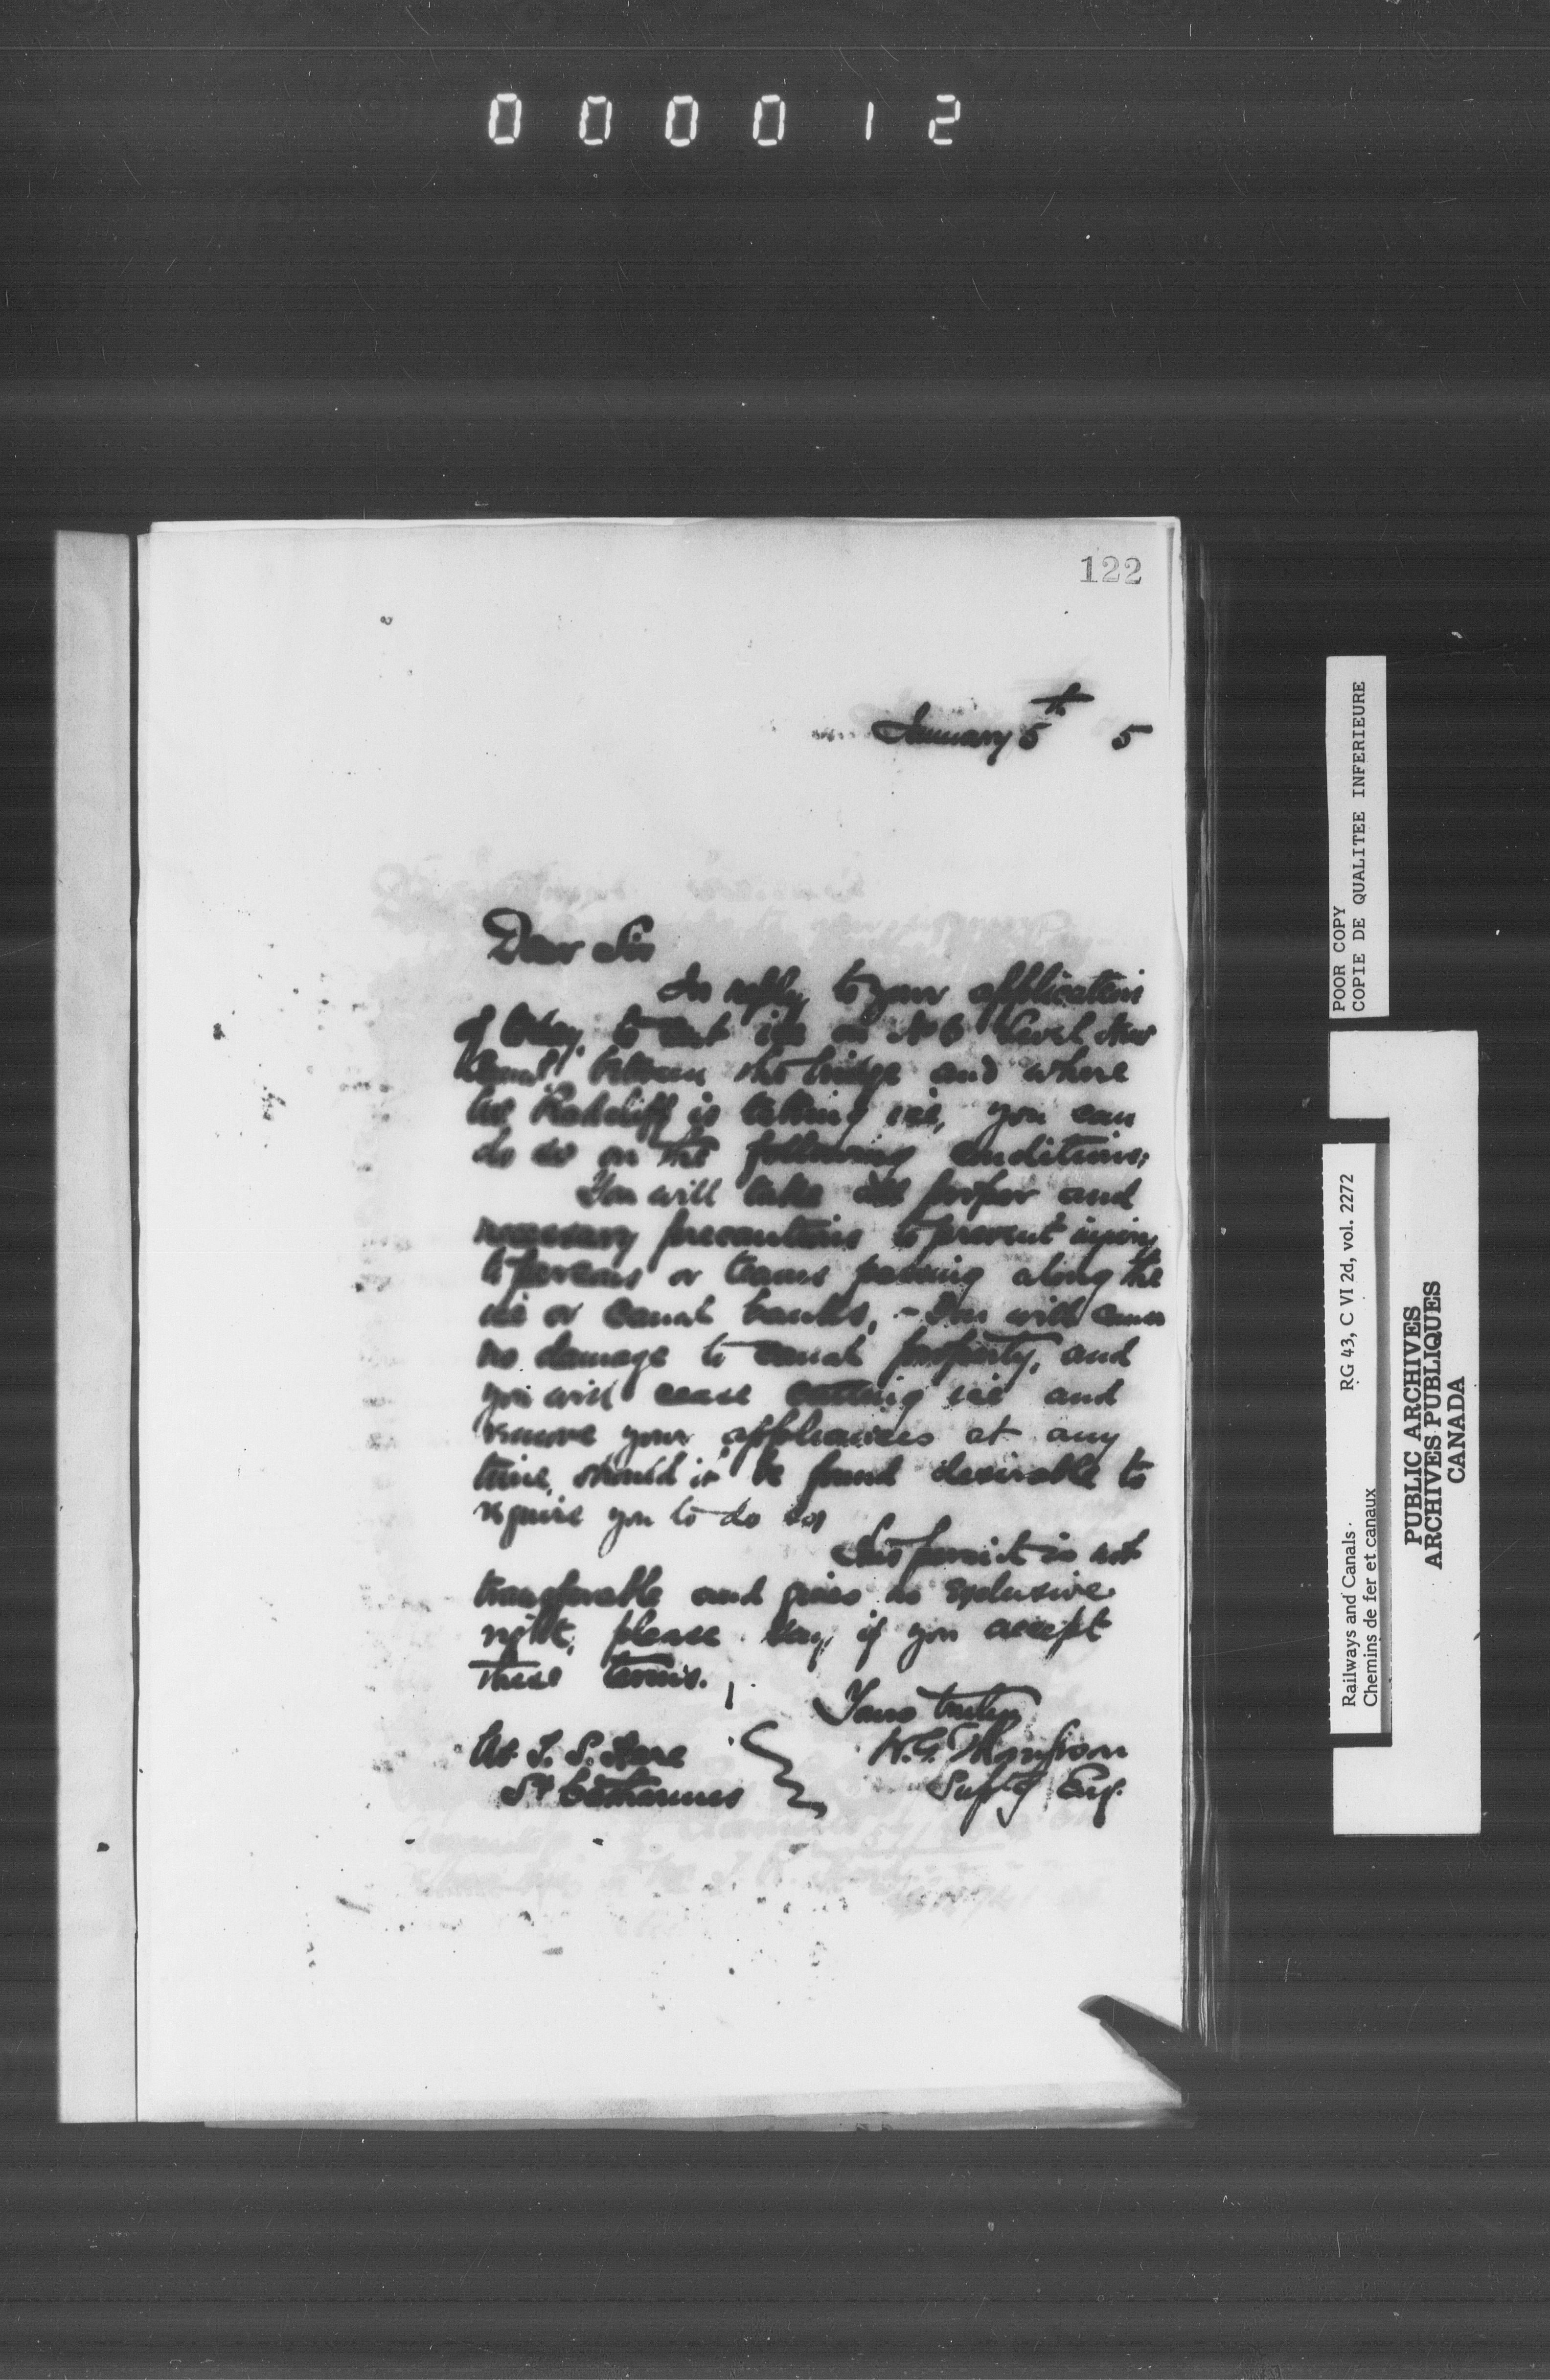 000012
122
January 5th 5
Dear Sir
In reply to your application
of today to cut ice on No 6 Level New
Canal between the bridge and where
Mr Radcliff is taking ice, you can
do so on the following conditions;
You will take all proper and
necessary precautions to prevent injury
to persons or teams passing along the
ice or canal banks, - You will cause
no damage to canal property, and
you will cease cutting ice and
remove your appliances at any
time, should it be found desirable to
require you to do so,
This permit is not
transferable and gives no exclusive
right, please say, if you accept
these terms.
Yours truly
Mr T. S.
W.G. Thompson
St Catharines
Supt g Eng.
POOR COPY
COPIE DE QUALITEE INFERIEURE
Railways and Canals
RG 43, C VI 2d, vol. 2272
Chemins de fer et canaux
PUBLIC ARCHIVES
ARCHIVES PUBLIQUES
CANADA